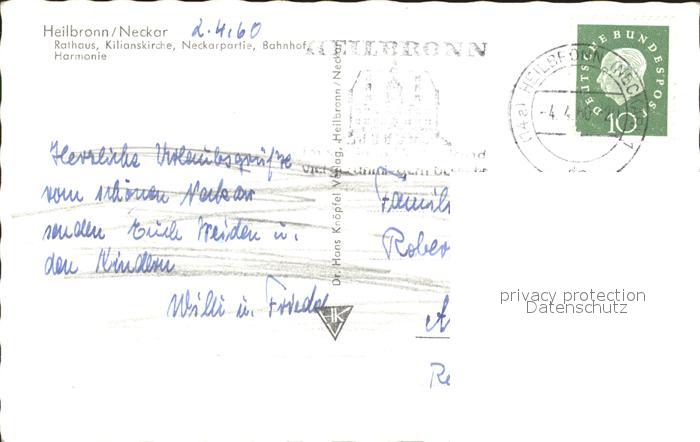 Heilbronn/Neckar 2.4.60
Rathaus, Kilianskirche, Neckarpartie, Bahnhof,
Harmonie
HEILBRONN
(14a) HEILBRONN (NECKAR) 1
-4.4.60
DEUTSCHE BUNDESPOST
10
Herzliche Urlaubsgrüße
vom schönen Neckar
senden Euch Beiden u.
den Kindern
Willi u. Friedel
Dr. Hans Kröpfel, Verlag, Heilbronn/Neckar
K
Famili
Rober
A
Re
privacy protection
Datenschutz